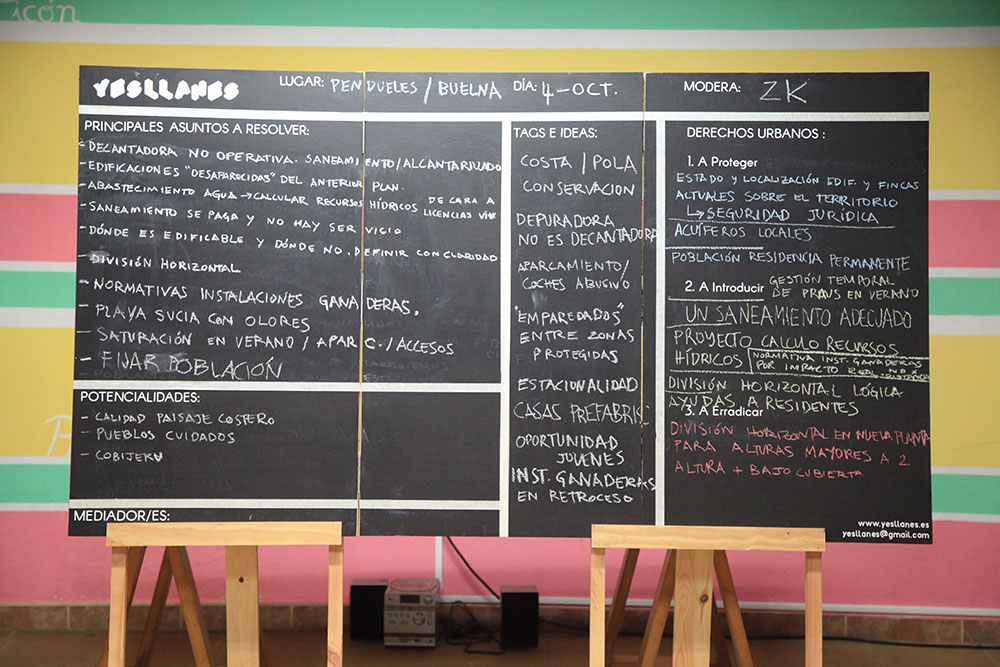 icón
YESLLANES
LUGAR: PENDUELES / BUELNA DÍA: 4-OCT. MODERA: ZK
PRINCIPALES ASUNTOS A RESOLVER:
- DECANTADORA NO OPERATIVA. SANEAMIENTO/ALCANTARILLADO
- EDIFICACIONES "DESAPARECIDAS" DEL ANTERIOR PLAN.
- ABASTECIMIENTO AGUA → CALCULAR RECURSOS HÍDRICOS DE CARA A LICENCIAS VIV
- SANEAMIENTO SE PAGA Y NO HAY SERVICIO
- DÓNDE ES EDIFICABLE Y DÓNDE NO, DEFINIR CON CLARIDAD
- DIVISIÓN HORIZONTAL
- NORMATIVAS INSTALACIONES GANADERAS.
- PLAYA SUCIA CON OLORES
- SATURACIÓN EN VERANO / APARC. / ACCESOS
- FIJAR POBLACIÓN
POTENCIALIDADES:
- CALIDAD PAISAJE COSTERO
- PUEBLOS CUIDADOS
- COBIJERU
MEDIADOR/ES:
TAGS E IDEAS:
COSTA / POLA
CONSERVACION
DEPURADORA
NO ES DECANTADORA
APARCAMIENTO/
COCHES ABUSIVO
"EMPAREDADOS"
ENTRE ZONAS
PROTEGIDAS
ESTACIONALIDAD
CASAS PREFABRIC
OPORTUNIDAD
JOVENES
INST. GANADERAS
EN RETROCESO
DERECHOS URBANOS :
1. A Proteger
ESTADO Y LOCALIZACIÓN EDIF. Y FINCAS
ACTUALES SOBRE EL TERRITORIO
↳ SEGURIDAD JURÍDICA
ACUÍFEROS LOCALES
POBLACIÓN RESIDENCIA PERMANENTE
2. A Introducir GESTIÓN TEMPORAL
DE PRAUS EN VERANO
UN SANEAMIENTO ADECUADO
PROYECTO CALCULO RECURSOS
HÍDRICOS NORMATIVA INST. GANADERAS
POR IMPACTO REAL NO X DISTANCIA
DIVISIÓN HORIZONTAL LÓGICA
AYUDAS A RESIDENTES
3. A Erradicar
DIVISIÓN HORIZONTAL EN NUEVA PLANTA
PARA ALTURAS MAYORES A 2
ALTURA + BAJO CUBIERTA
www.yesllanes.es
yesllanes@gmail.com